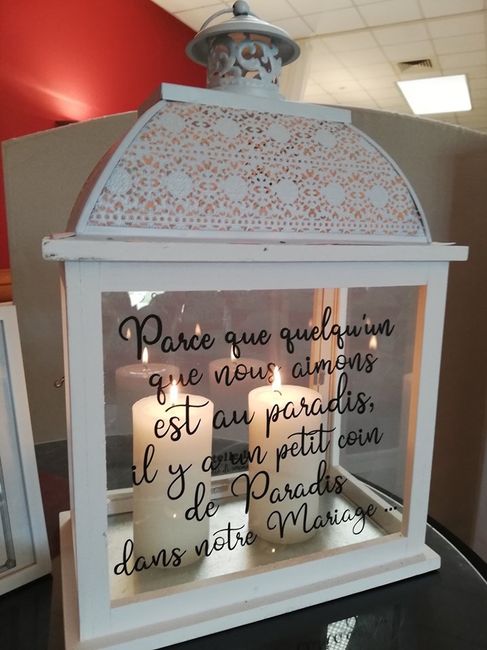 Parce que quelqu'un
que nous aimons
est au paradis,
il y a un petit coin
de Paradis
dans notre Mariage...